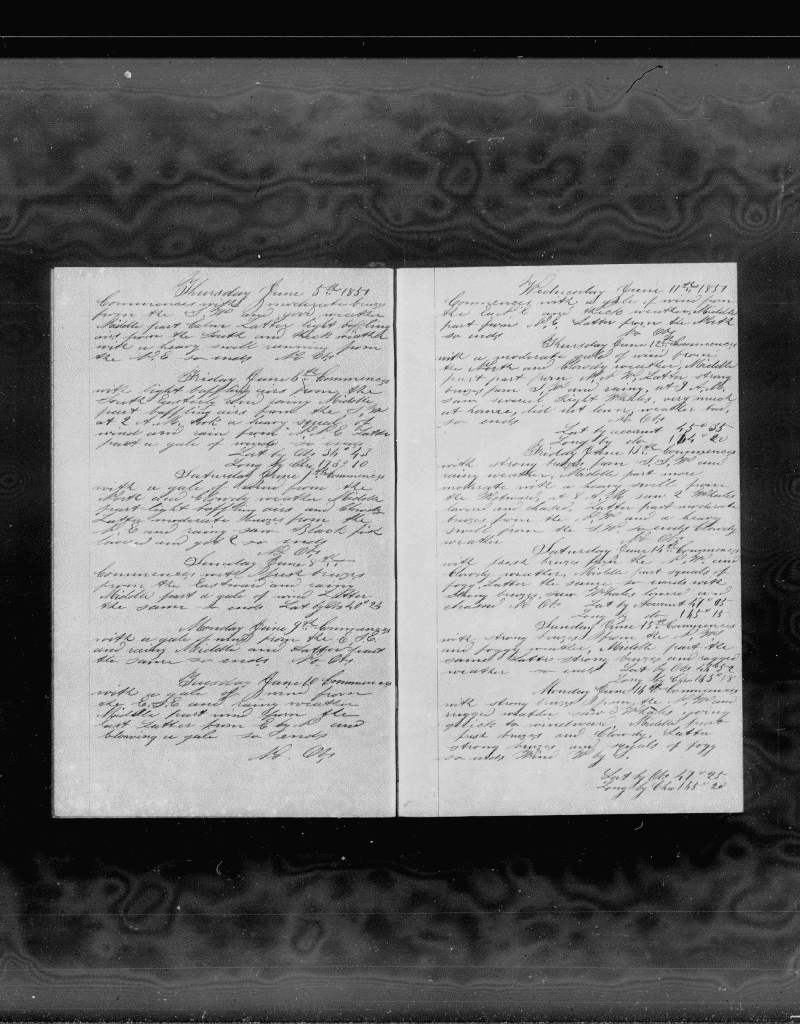 Thursday June 5th 1851
Commences with moderate breeze
from the S.W. and good weather
Middle part Calm Latter light baffling
airs from the South and thick weather
with a heavy swell running from
the N.E so ends No Obs
Friday June 6th Commences
with light baffling airs from the
South Easterly and rainy Middle
part baffling airs from the S.W
at 2 A.M. took a heavy squall of
wind and rain from N.N.E Latter
part a gale of wind so ends
Lat by Obs 34° 43
Long by Chr 10
Saturday June 7th Commences
with a gale of wind from the
North and Cloudy weather Middle
part light baffling airs and Cloudy
Latter moderate breezes from the
N.E and rainy saw Black fish
lowered and got 2 so ends
No Obs
Sunday June 8th
Commences with fresh breezes
from the Eastward and rainy
Middle part a gale of wind Latter
the same so ends Lat by Obs 40° 24
Monday June 9th Commences
with a gale of wind from the E.S.E
and rainy Middle and Latter part
the same so ends No Obs
Tuesday June 10 Commences
with a gale of wind from
the E.S.E and rainy weather
Middle part wind from the
East Latter from E by N and
blowing a gale so ends
No Obs
Wednesday June 11th 1851
Commences with a gale of wind from
the East and thick weather, Middle
part from N.E, Latter from the North
so ends No Obs
Thursday June 12th Commences
with a moderate gale of wind from
the North and Cloudy weather, Middle
part from N.W, Latter strong
breezes from S.W and rainy, at 9 A.M,
saw several Right Whales, very much
at home, did not lower, weather bad,
so ends No Obs
Lat by account 45° 35
Long by do 164° 20
Friday June 13th Commences
with strong breezes from S.S.W and
rainy weather, Middle part more
moderate with a heavy swell from
the Westward, at 8 A.M saw 2 Whales
lowered and chased, Latter part moderate
breezes from the N.W and a heavy
swell from the S.W so ends Cloudy
weather No Obs
Saturday June 14th Commences
with fresh breeze from the N.W. and
Cloudy weather, Middle part squalls of
fog, Latter the same so ends with
strong breezes, saw Whales lowered and
chased No Obs Lat by Account 47° 05
Long by do 165° 15
Sunday June 15th Commences
with strong breezes from the N.W
and foggy weather, Middle part the
same Latter strong breezes and rugged
weather so ends Lat by Obs 52
Long by Chr 165° 18
Monday June 16th Commences
with strong breezes from the N.W and
rugged weather saw 2 Whales going
quick to windward, Middle part
fresh breezes and Cloudy, Latter
strong breezes and squalls of fogg
so ends Wind W by S.
Lat by Obs 47° 25
Long by Chro 165° 20